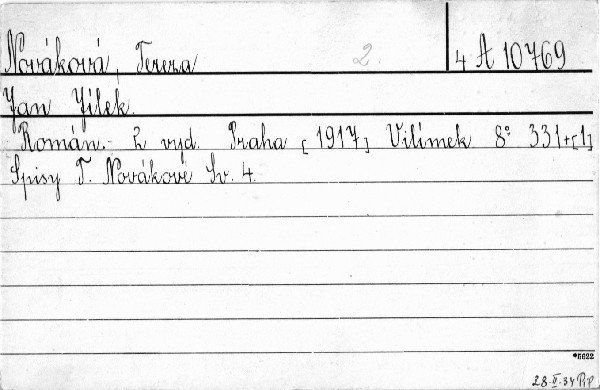 Nováková, Tereza 2. 4 A 10769
Jan Jílek.
Román. - 2 vyd. Praha [1917] Vilímek 8° 331+[1]
Spisy T. Novákové Sv. 4.
*5622
28.II.34